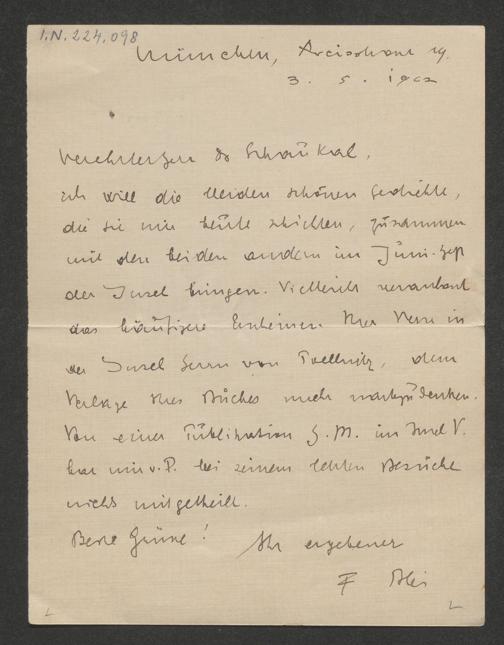 I.N. 224.098
München, Arcisstrasse 19.
3. 5. 1902
Verehrter Herr Dr Schaukal,
ich will die beiden schönen Gedichte,
die sie mir heute schickten, zusammen
mit den beiden andern im Juni-Heft
der Insel bringen. Vielleicht veranlasst
das häufigere Erscheinen Ihrer Verse in
der Insel Herrn von Poellnitz, dem
Verlage Ihres Buches nachzudenken.
Von einer Publikation G. M. im Insel V.
hat mir v. P. bei seinem letzten Besuche
nichts mitgetheilt.
Beste Grüsse! Ihr ergebener
F Blei